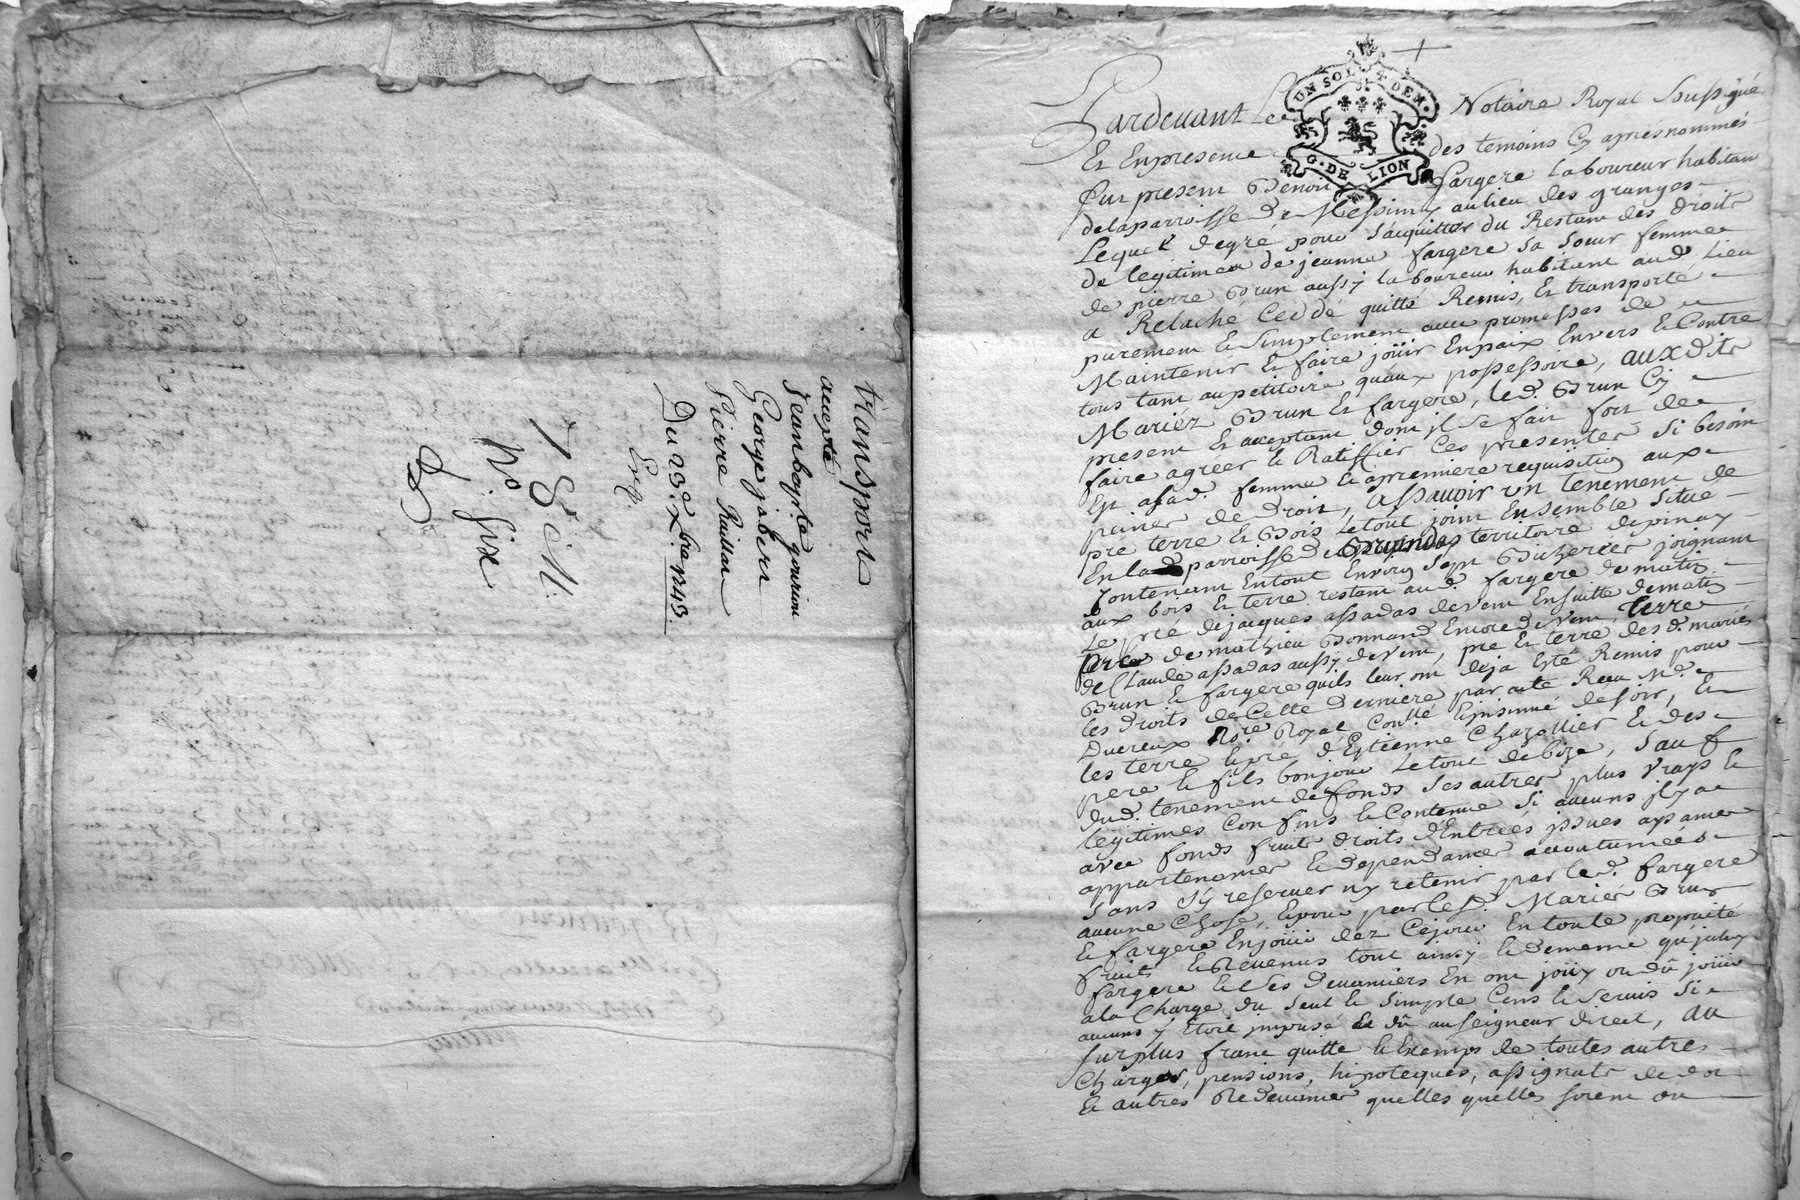 transport
accepté
Jean bapte
George jabert
Pierre
Du 23e xbre 1743.
Exp.
78 M.
No. Six
UN SOL 4 DEN.
G. DE LION
Pardevant Le Notaire Royal Soussigné
Et En presence des temoins Cy aprés nommés
fut present Benoit fargere Laboureur habitant
de la parroisse de Messimy au lieu des granges
Lequel de gré pour Sacquitter du Restant des droits
de legitime de jeanne fargere Sa Soeur femme
de pierre Brun aussy laboureur habitant aud. Lieu
a Relaché Ceddé quitté Remis, Et transporté
purement Et Simplement avec promesses de
Maintenir Et faire joüir En paix Envers Et Contre
tous tant au petitoire quaux possessoire, auxdits
Mariéz Brun Et fargere, led. Brun Cy
present Et acceptant dont jl Se fait fort de
faire agreer Et Ratiffier Ces presentes Si besoin
Est a sad. femme a premiere requisition aux
peines de droit, Assavoir un tenement de
pré terre Et Bois Le tout joint Ensemble Situé
En lad. parroisse de territoire depinay
Contenant En tout Environ Sept Bicherées joignant
aux bois Et terre restant aud. fargere de matin
Le pré de jacques assadas de vent En suitte de matin
de mathieu Bonnand Encore de vent, terre
de Claude assadas aussy de vent, pré Et terre des d. mariés
Brun Et fargere quils leur ont deja Esté Remis pour
les droits de Cette derniere par acte Receu Me.
Duereux Nore. Royal Conllé Et jnsinué de soir, Et
les terre Et pré d'Estienne Chazollier Et des
pere Et fils bonjour Le tout de bize, Sauf
dud. tenement de fonds Ses autres plus vrays Et
legitimes Confins Et Contenue Si aucuns jl y a
avec fonds fruits droits d'Entrées jssues aysances
appartenances Et dependances accoutumées
Sans Sy reserver ny retenir par led. fargere
aucune Chose, Et pour par lesd. Mariés Brun
Et fargere En joüir dez Cejour En toute proprieté
fruits Et Revenus tout ainsy Et de meme que led.
fargere Et Ses devanciers En ont joüy ou dû joüir
a la Charge du Seul Et Simple Cens Et Servis Si
aucuns y Etoit jmposé Et dû au Seigneur direct, au
Surplus franc quitte Et Exemps de toutes autres
Charges, pensions, hipoteques, assignats de dot
Et autres Redevances quelles quelles Soient ou